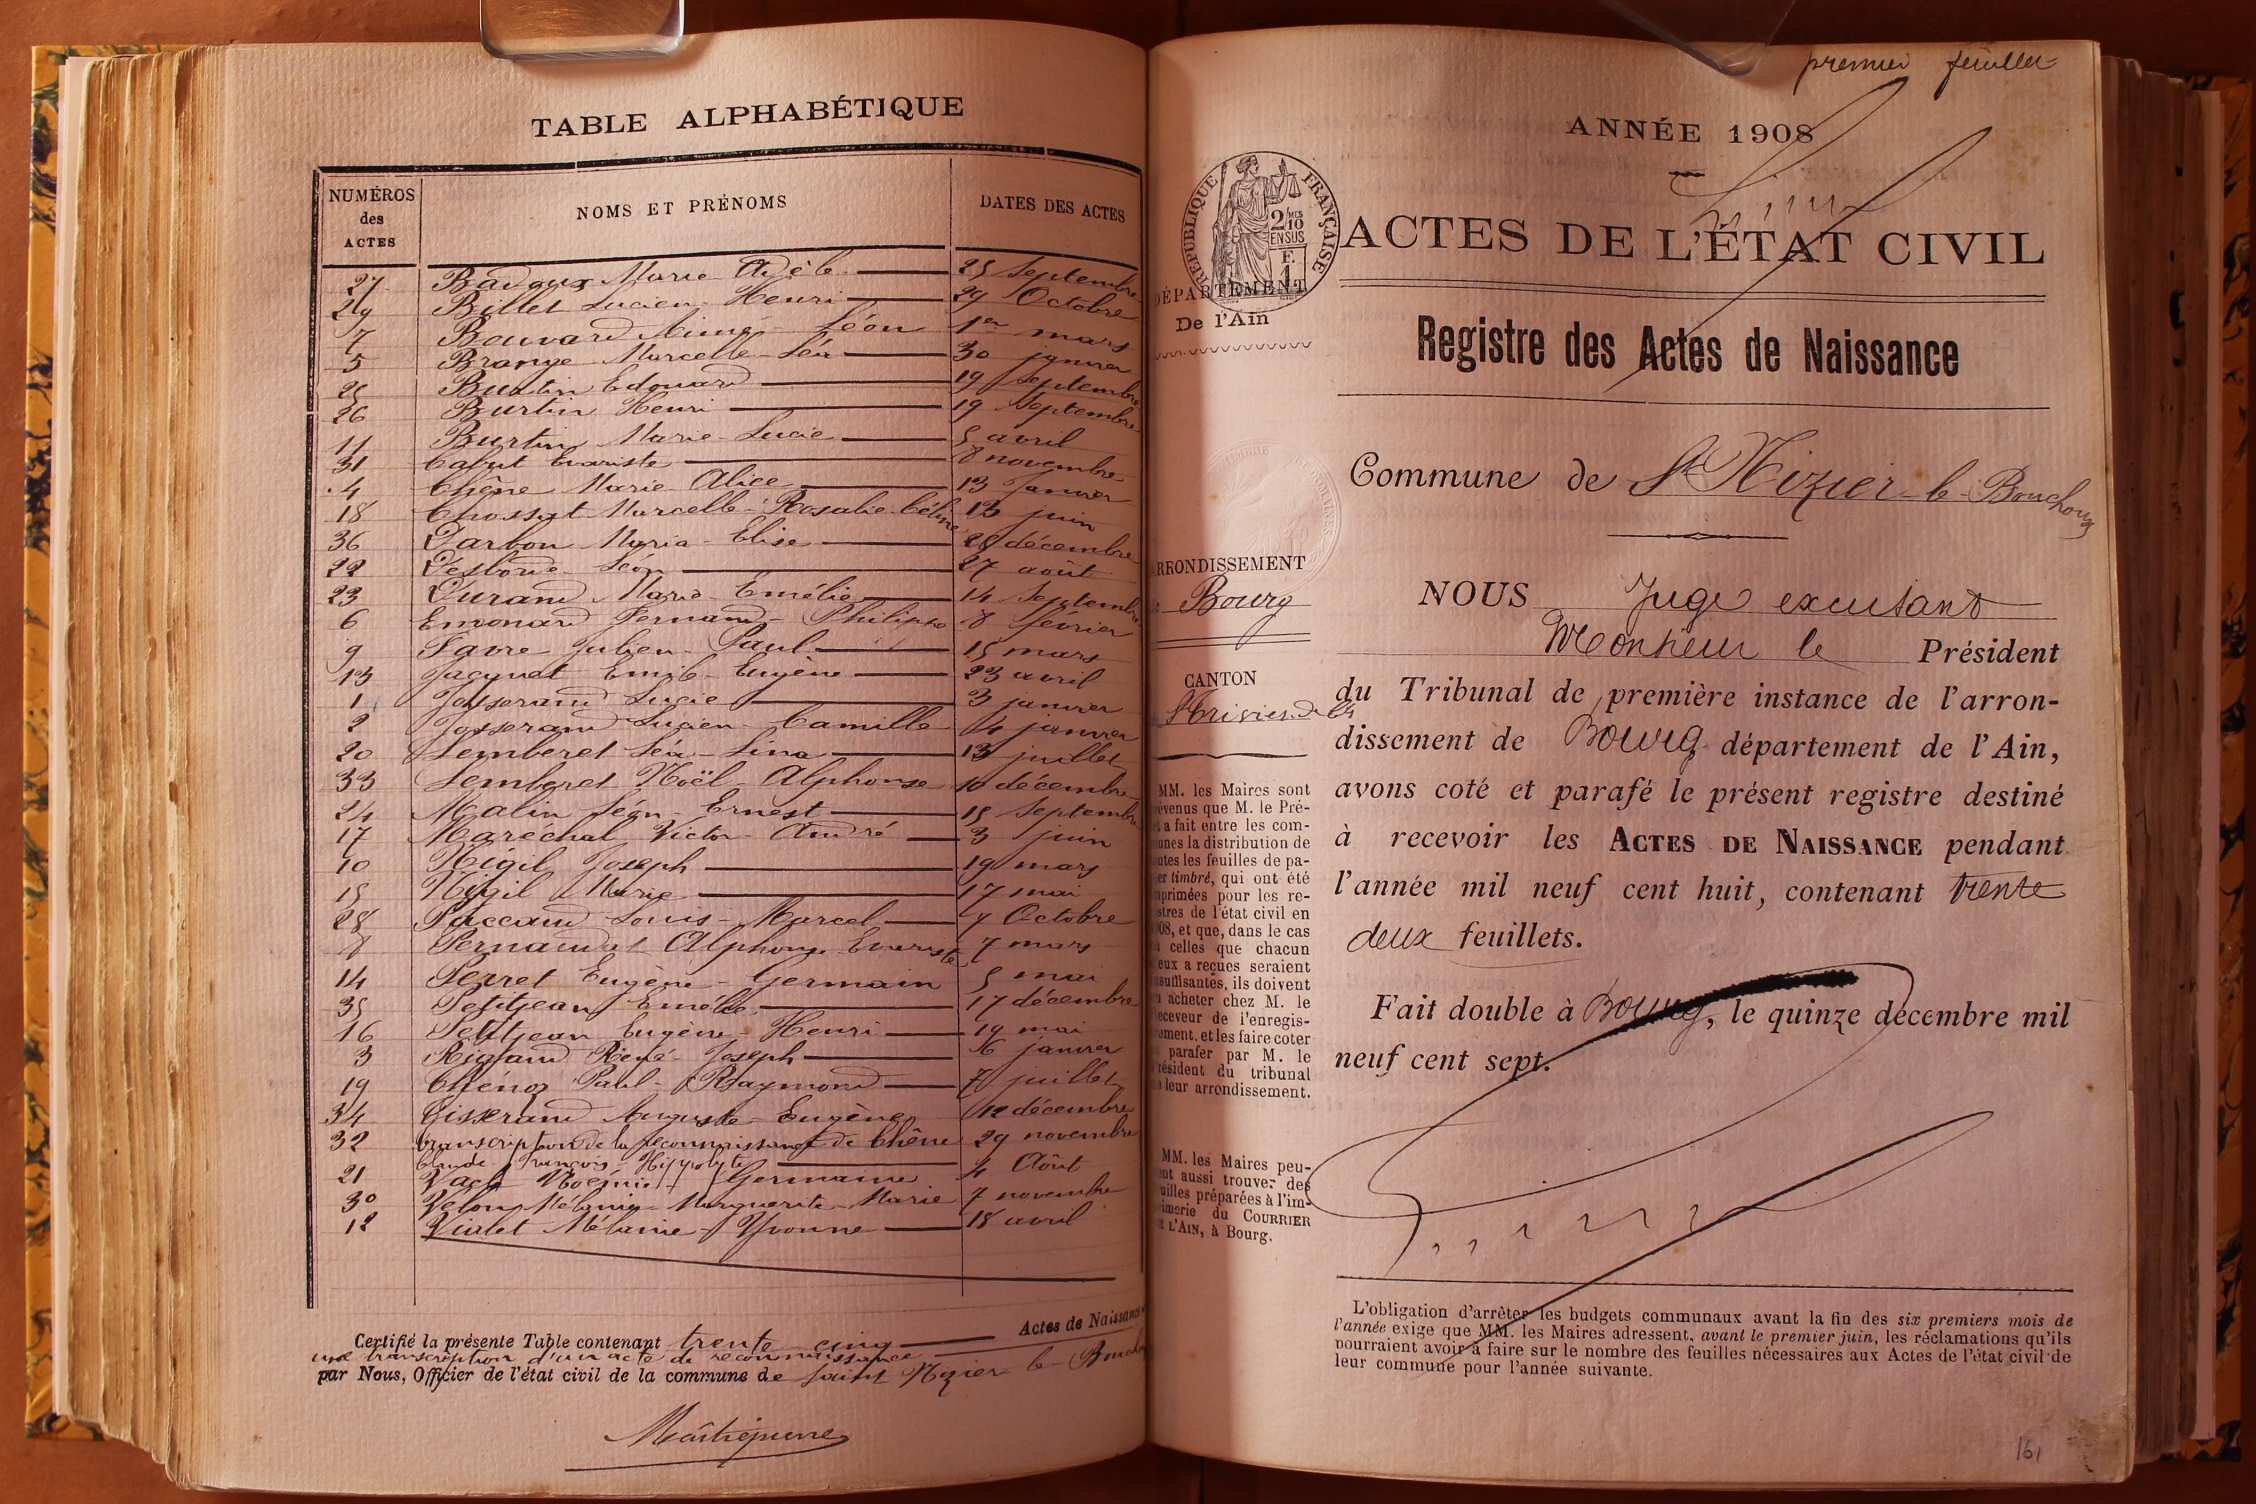 TABLE ALPHABÉTIQUE
NUMÉROS des ACTES
NOMS ET PRÉNOMS
DATES DES ACTES
27 Marie Adèle 25 Septembre
29 Billet Lucien Henri 29 Octobre
7 Bouvard Aimé Léon 1er mars
5 Brange Marcelle Léa 30 janvier
25 Burtin Edouard 19 Septembre
26 Burtin Henri 19 Septembre
11 Burtin Marie Lucie 5 avril
31 Cabut Evariste 8 novembre
4 Chêne Marie Alice 13 Janvier
18 Chossat Marcelle Rosalie Céline 13 juin
36 Darbon Maria Elise décembre
22 Desbord Léon 27 août
23 Durand Marie Emélie 14 Septembre
6 Emonard Fernand Philippe 8 février
9 Favre Julien Paul 15 mars
13 Jacquet Emile Eugène 23 avril
1 Josserand Lucie 3 janvier
2 Josserand Lucien Camille 4 janvier
20 Lemberet Léa Lina 13 juillet
33 Lemberet Noël Alphonse 10 décembre
24 Malin Léon Ernest 15 Septembre
17 Maréchal Victor André 3 juin
10 Nigil Joseph 19 mars
15 Nigil Marie 17 mai
28 Paccaud Louis Marcel 7 Octobre
8 Alphonse Evariste 7 mars
14 Perret Eugène Germain 5 mai
35 Petitjean Emélie 17 décembre
16 Petitjean Eugène Henri 19 mai
3 Rigaud René Joseph 6 janvier
19 Thénoz Paul Raymond 7 juillet
34 Tisserand Auguste Eugène 12 décembre
32 transcription de la reconnaissance de Chêne 29 novembre
Claude François Hippolyte
21 Germaine 4 Août
30 Velon Mélanie Marguerite Marie 7 novembre
12 Vialet Mélanie Yvonne 18 avril
Certifié la présente Table contenant trente cinq Actes de Naissance
une transcription d'un acte de reconnaissance
par Nous, Officier de l'état civil de la commune de Saint Nizier le Bouchoux
premier feuillet
ANNÉE 1908
RÉPUBLIQUE FRANÇAISE
2/10 MES
EN SUS
F.
1
ACTES DE L'ÉTAT CIVIL
DÉPARTEMENT
De l'Ain
Registre des Actes de Naissance
Commune de St Nizier le Bouchoux
ARRONDISSEMENT
Bourg
CANTON
St Trivier de
MM. les Maires sont
révenus que M. le Pré-
a fait entre les com-
unes la distribution de
utes les feuilles de pa-
er timbré, qui ont été
primées pour les re-
stres de l'état civil en
08, et que, dans le cas
celles que chacun
eux a reçues seraient
suffisantes, ils doivent
acheter chez M. le
eceveur de l'enregis-
ement, et les faire coter
parafer par M. le
résident du tribunal
leur arrondissement.
MM. les Maires peu-
nt aussi trouver des
uilles préparées à l'im-
imerie du COURRIER
L'AIN, à Bourg.
NOUS Juge excusant
Monsieur le Président
du Tribunal de première instance de l'arron-
dissement de Bourg département de l'Ain,
avons coté et parafé le présent registre destiné
à recevoir les ACTES DE NAISSANCE pendant
l'année mil neuf cent huit, contenant trente
deux feuillets.
Fait double à Bourg, le quinze décembre mil
neuf cent sept.
L'obligation d'arrêter les budgets communaux avant la fin des six premiers mois de
l'année exige que MM. les Maires adressent, avant le premier juin, les réclamations qu'ils
pourraient avoir à faire sur le nombre des feuilles nécessaires aux Actes de l'état civil de
leur commune pour l'année suivante.
161